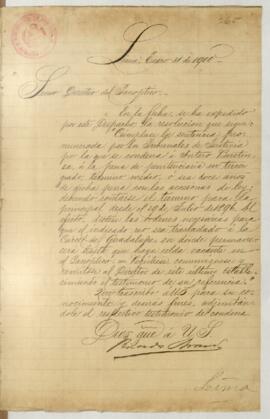 265
Lima, Enero 31 de 1910
Señor Director del Panóptico.
En la fecha, se ha expedido
por este Despacho la resolución que sigue:
"Cúmplase la sentencia pro-
nunciada por los Tribunales de Justicia
por la que se condena á Antero
á la pena de penitenciaría en tercer
grado, término medio, ó sea doce años
de dicha pena con las accesorias de ley,
debiendo contarse el término para la
principal desde el 10 de Julio de
efecto, dícten las órdenes necesarias para
que el indicado reo sea trasladado á la
Cárcel de Guadalupe en donde permanece-
rá hasta que haya celda vacante en
el Panóptico.
remítase al Director de este último estable-
cimiento el testimonio de su referencia."
Que trascribo á US. para su co-
nocimiento y demás fines, adjuntán-
dole el respectivo testimonio de condena
Dios gue á U S.